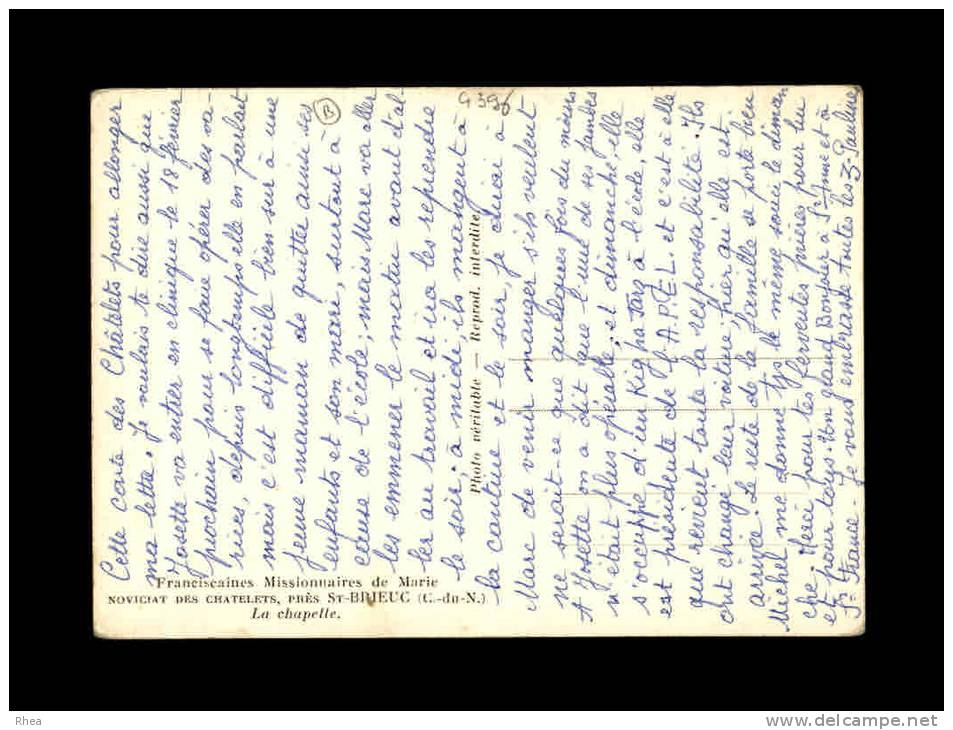 Cette carte des Châtelets pour allonger
ma lettre. Je voulais te dire aussi que
Josette va entrer en clinique le 18 février
prochain pour se faire opérer des va-
rices, depuis longtemps elle en parlait
mais c'est difficile bien sur à une
jeune maman de quitter ainsi ses
enfants et son mari, surtout à
cause de l'école; mais Marc va aller
les emmener le matin avant d'al-
ler au travail et ira les reprendre
le soir; à midi, ils mangent à
la cantine et le soir, je dirai à
Marc de venir manger s'ils veulent
ne serait-ce que quelques fois du moins
A Josette on a dit que l'une de ses jambes
n'était plus opérable, et dimanche, elle
s'occuppe d'un à l'école, elle
est présidente de l'A.P.E.L. et c'est à elle
que revient toute la responsabilité. Ils
ont changé leur voiture, hier qu'elle est
arrivée. Le reste de la famille se porte bien
Michel me donne tjs le même souci le diman
che, Merci pour tes ferventes prières pour lui
et pour tous. Bonjour à Sr Anne et à
Sr France. Je vous embrasse toutes les 3. Pauline
B
4396
Photo véritable — Reprod. interdite
Franciscaines Missionnaires de Marie
NOVICIAT DES CHATELETS, PRÈS ST-BRIEUC (C.-du-N.)
La chapelle.
Rhea
www.delcampe.net